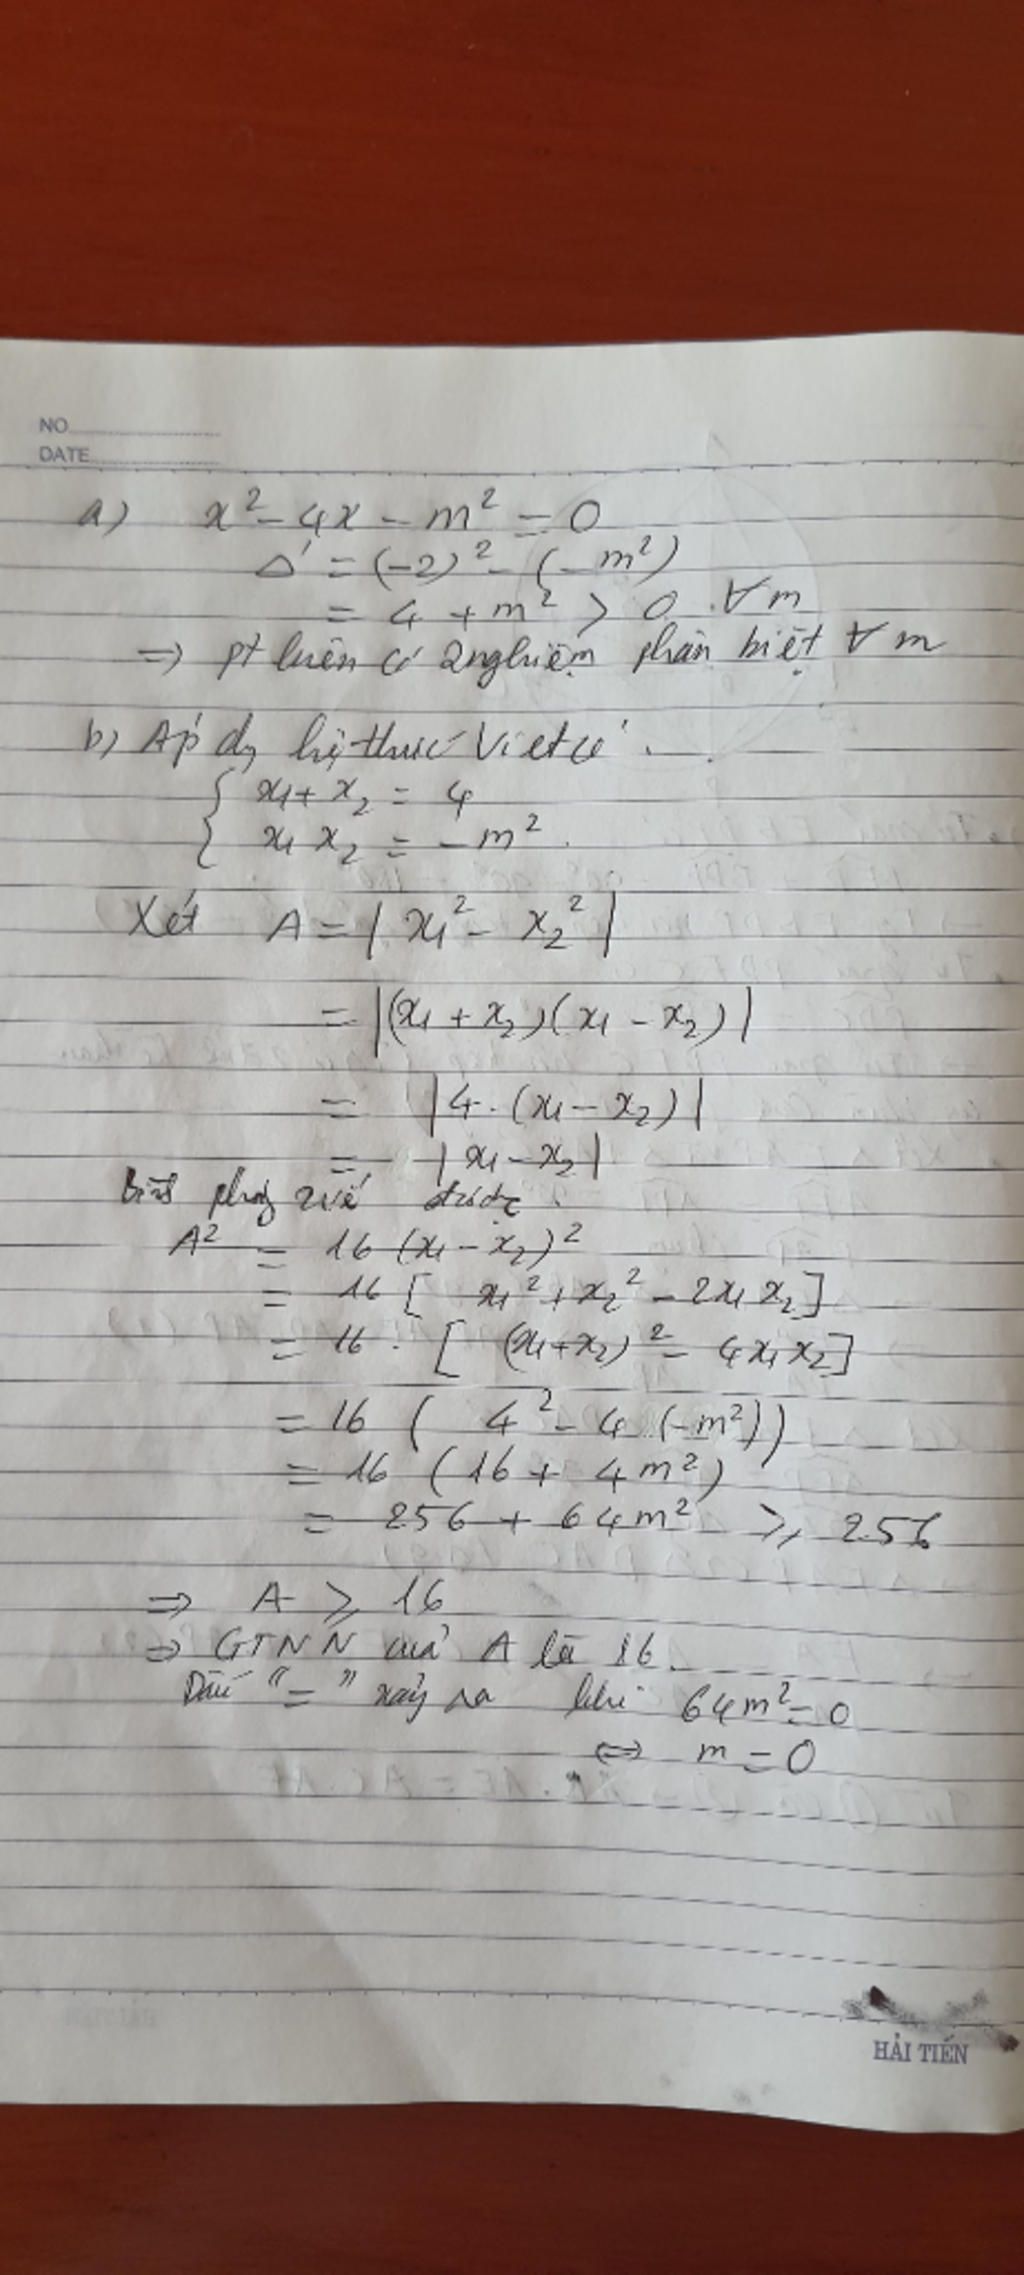 NO
DATE
a) x² - 4x - m² = 0
Δ' = (-2)² - (-m²)
= 4 + m² > 0 ∀m
=> pt luôn có 2 nghiệm phân biệt ∀ m
b) Áp dg hệ thức Viet có
{ x₁ + x₂ = 4
x₁ x₂ = -m².
Xét A = | x₁² - x₂² |
= |(x₁ + x₂)(x₁ - x₂)|
= |4.(x₁ - x₂)|
= |x₁ - x₂|
Bình phg 2 vế được.
A² = 16 (x₁ - x₂)²
= 16 [ x₁² + x₂² - 2x₁ x₂]
= 16 . [ (x₁+x₂)² - 4x₁ x₂]
= 16 ( 4² - 4 (-m²))
= 16 (16 + 4m²)
= 256 + 64m² ⩾ 256
=> A ⩾ 16
=> GTNN của A là 16.
Dấu "=" xảy ra khi 64m² = 0
<=> m = 0
HẢI TIẾN